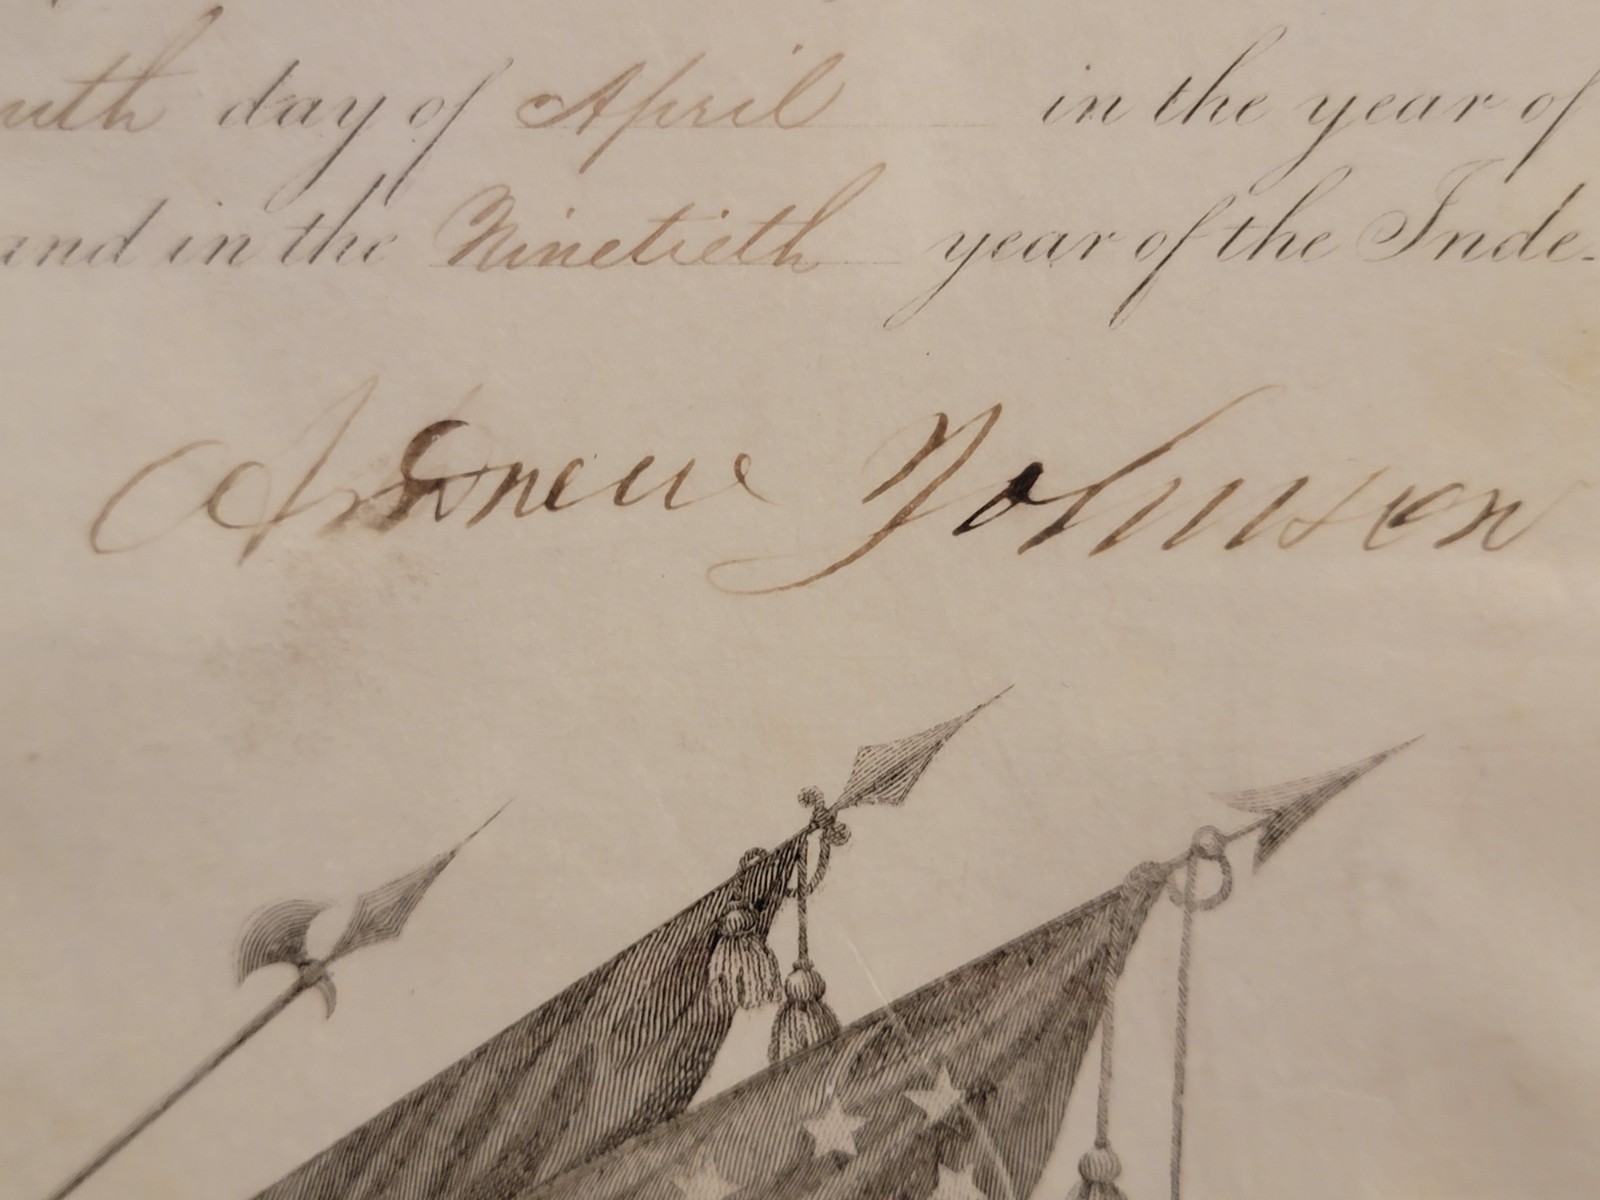 day of April in the year of
and in the Ninetieth year of the Inde-
Andrew Johnson